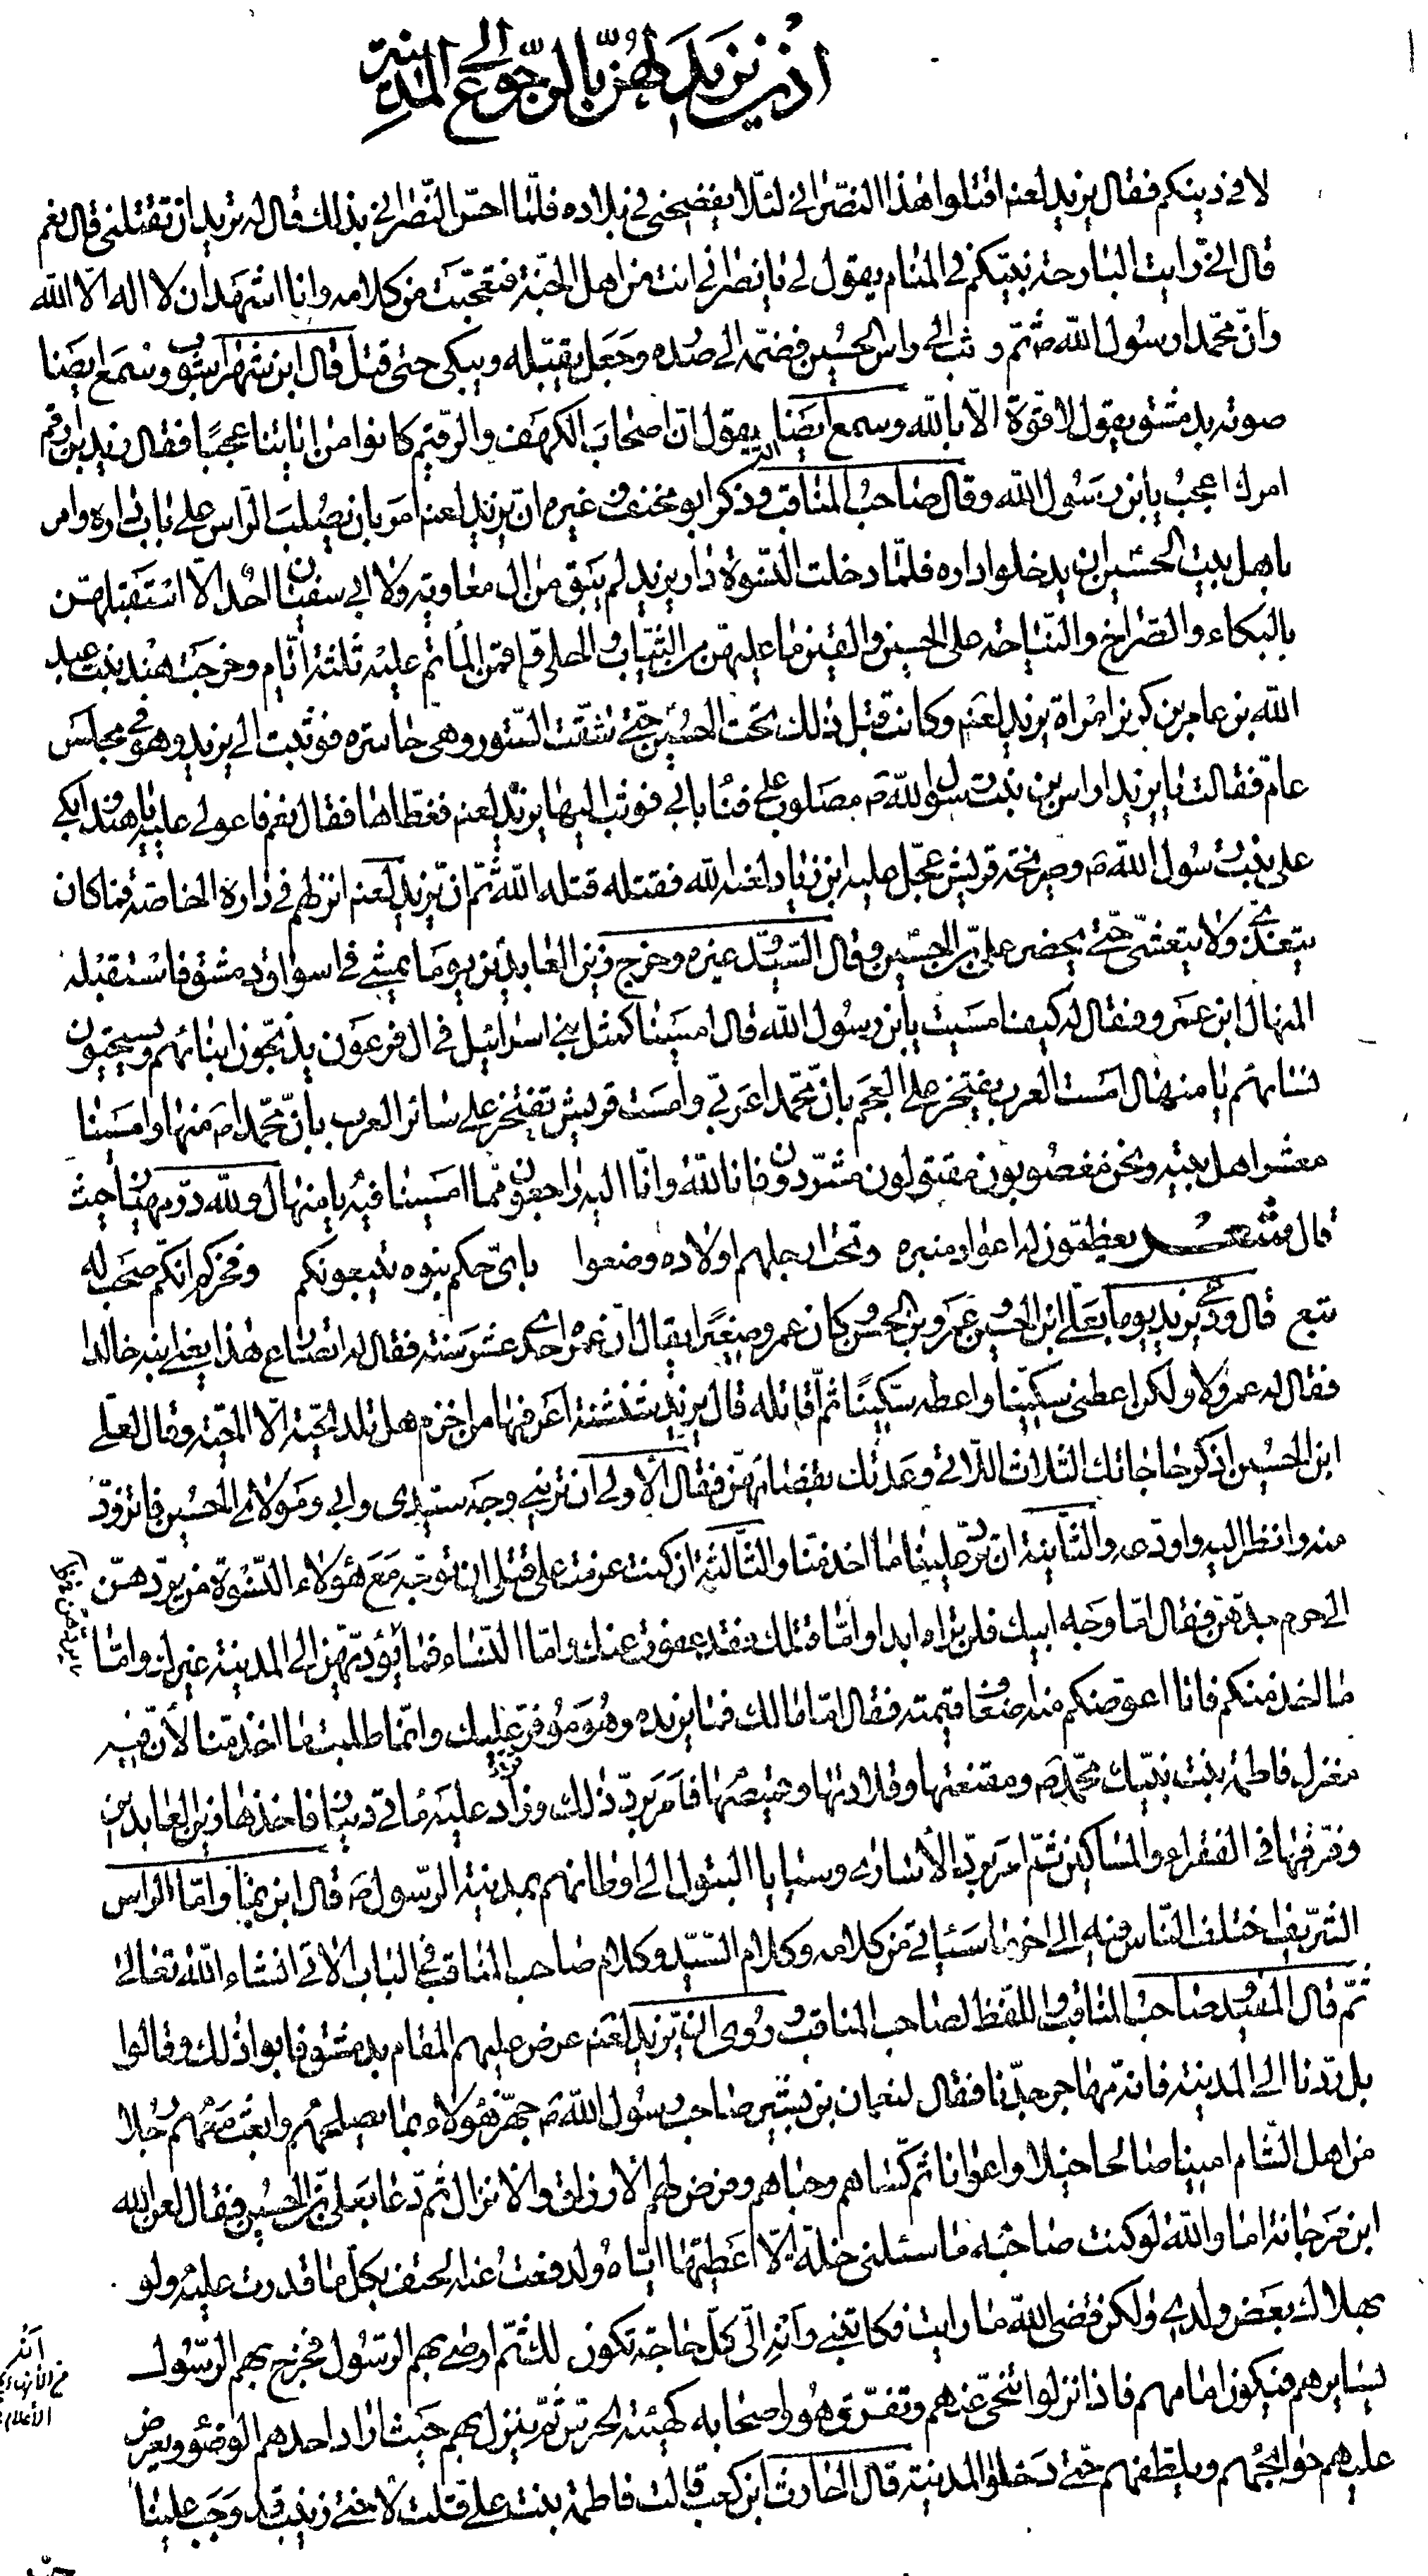 اذن يزيد لهنّ بالرّجوع الى المدينة
لا في دينكم فقال يزيد لعنه اقتلوا هذا النصّرانى لئلّا يفضحنى في بلاده فلمّا احسّ النّصرانى بذلك قال له تريد ان تقتلنى قال نعم
قال انّى رايت البارحة نبيّكم في المنام يقول لى يا نصرانى انت من اهل الجنّة فتعجّبت من كلامه وانا اشهد ان لا اله الّا اللّه
وانّ محمّدا رسول اللّه ص ثمّ وثب الى راس الحسين فضمّه الى صدره وجعل يقبّله ويبكى حتى قتل قال ابن شهراشوب وسمع ايضا
صوته بدمشق يقول لا قوّة الّا باللّه وسمع ايضا يقول انّ اصحاب الكهف والرّقيم كانوا من اياتنا عجبًا فقال زيد ابن ارقم
امرك اعجب يا بن رسول اللّه وقال صاحب المناقب وذكر ابو مخنف وغيره انّ يزيد لعنه امر بان يصلب الرّاس على باب داره وامر
باهل بيت الحسين ان يدخلوا داره فلمّا دخلت النّسوة دار يزيد لم يبق من ال معاوية ولا ابى سفيان احد الّا استقبلهنّ
بالبكاء والصّراخ والنّياحة على الحسين والقين ما عليهنّ من الثّياب والحلى واقمن المأتم عليه ثلثة ايّام وخرجت هند بنت عبد
اللّه بن عامر بن كريز امراة يزيد لعنه وكانت قبل ذلك تحت الحسين حتّى شقّت السّتور وهى حاسرة فوثبت الى يزيد وهو في مجلس
عامّ فقالت يا يزيد اراس بن بنت رسول اللّه ص مصلوب على فنا بابى فوثب اليها يزيد لعنه فغطّاها فقال نعم فاعولى عليه يا هند وابكى
على بن بنت رسول اللّه ص وصريخة قريش عجّل عليه ابن زياد لعنه اللّه فقتله قتله اللّه ثمّ انّ يزيد لعنه انزلهم في داره الخاصّة فما كان
يتغدّى ولا يتعشّى حتّى يحضر علىّ بن الحسين وقال السّيّد وغيره وخرج زين العابدين يوما يمشى في اسواق دمشق فاستقبله
المنهال ابن عمرو فقال له كيف امسيت يا بن رسول اللّه قال امسينا كمثل بنى اسرائيل في ال فرعون يذبّحون ابنائهم ويستحيون
نسائهم يا منهال امست العرب يفتخر على العجم بانّ محمّدا عربّى وامست قريش تفتخر على سائر العرب بانّ محمّدا ص منها وامسينا
معشر اهل بيته ونحن مغصوبون مقتولون مشرّدون فانا للّه وانّا اليه راجعون ممّا امسينا فيه يا منهال وللّه درّ مهيار حيث
قال شعر يعظّمون له اعواد منبره وتحت ارجلهم اولاده وضعوا باىّ حكم بنوه يتبعونكم وفخركم انكم صحب له
تبع قال ودعى يزيد يوما بعلى ابن الحسين وعمرو بن الحسن كان عمرو صغيرًا يقال انّ عمره احدى عشر سنة فقال له اتصارع هذا يعنى ابنه خالدا
فقال له عمرو لا ولكن اعطنى سكّينا واعطه سكّينًا ثمّ اقاتله قال يزيد شنشنة اعرفها من اخزم هل تلد الحيّة الّا الحيّة وقال لعلّى
ابن الحسين اذكر حاجاتك الثلاث اللّاتى وعدتك بقضائهنّ فقال الأولى ان ترينى وجه سيّدى وابى ومولاى الحسين فاتزوّد
منه وانظر اليه واودّعه والثّانية ان تردّ علينا ما اخذ منّا والثّالثة ان كنت عزمت على قتلى ان توجّه مع هؤلاء النّسوة من يردّهنّ
الى حرم جدّهنّ فقال امّا وجه ابيك فلن تراه ابدا وامّا قتلك فقد عفوت عنك وامّا النّساء فما يؤدّيهنّ الى المدينة غيرك وامّا
ما اخذ منكم فانا اعوّضكم عنه اضعاف قيمته فقال امّا مالك فما نريده وهو موفّر عليك وانّما طلبت ما اخذ منّا لأنّ فيه
مغزل فاطمة بنت نبيّك محمّد ص ومقنعتها وقلادتها وقميصها فامر بردّ ذلك وزاد عليه مأتى دينار فاخذها زين العابدين
وفرّقها في الفقراء والمساكين ثمّ امر بردّ الأسارى وسبايا البتول الى اوطانهم بمدينة الرّسول ص قال ابن نما وامّا الراس
الشّريف اختلف النّاس فيه الى اخر ما سياتى من كلامه وكلام السّيّد وكلام صاحب المناقب في الباب الاتى انشاء اللّه تعالى
ثمّ قال المفيد وصاحب المناقب واللّفظ لصاحب المناقب وروى انّ يزيد لعنه عرض عليهم المقام بدمشق فابوا ذلك وقالوا
بل ردّنا الى المدينة فانّه مهاجر جدّنا فقال لنعمان بن بشير صاحب رسول اللّه ص جهّز هؤلاء بما يصلحهم وابعث معهم رجلا
من اهل الشّام امينا صالحا وابعث معهم خيلا واعوانا ثمّ كساهم وحباهم وفرض لهم الارزاق والانزال ثمّ دعا بعلىّ بن الحسين فقال لعن اللّه
ابن مرجانة اما واللّه لو كنت صاحبه ما سئلنى خلّة الّا اعطيتها ايّاه ولدفعت عنه الحتف بكلّ ما قدرت عليه ولو
بهلاك بعض ولدى ولكن قضى اللّه ما رايت فكاتبنى وانه الىّ كلّ حاجة تكون لك ثمّ اوصى بهم الرّسول فخرج بهم الرّسول
يسايرهم فيكون امامهم فاذا نزلوا تنحّى عنهم وتفرّق هو واصحابه كهيئة الحرس ثمّ ينزل بهم حيث اراد احدهم الوضوء ويعرض
عليهم حوائجهم ويلطّفهم حتّى دخلوا المدينة قال الحارث ابن كعب قالت فاطمة بنت علىّ قلت لاختى زينب قد وجب علينا